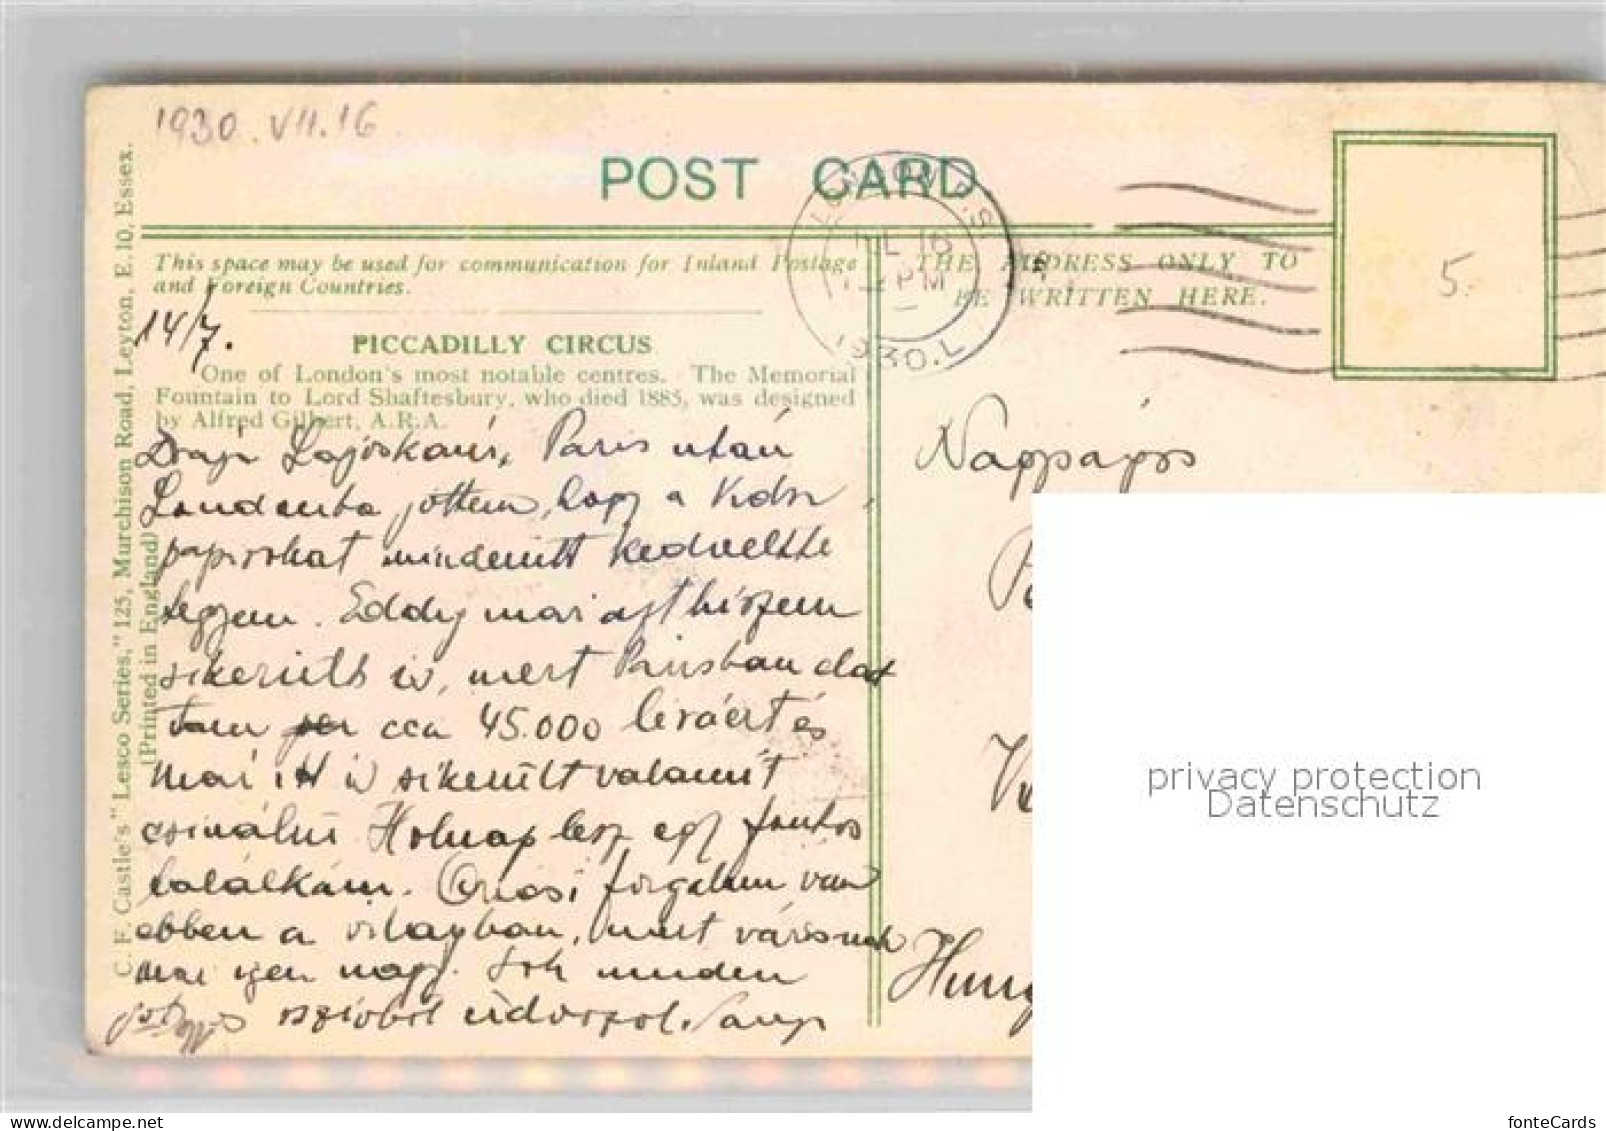 1930.VII.16
POST CARD
LONDON. S.
JUL 16
PM
1930.L
This space may be used for communication for Inland Postage
and Foreign Countries.
THE ADDRESS ONLY TO
BE WRITTEN HERE.
5
14/7.
PICCADILLY CIRCUS
One of London's most notable centres. The Memorial
Fountain to Lord Shaftesbury, who died 1885, was designed
by Alfred Gilbert, A.R.A.
C. F. Castle's "Lesco Series," 125, Murchison Road, Leyton, E.10, Essex.
(Printed in England)
Paris után
Londonba jöttem, hogy a
mindenütt
legyen. Eddig már azt hiszem
sikerült is, mert Párisban
45.000 líráért és
már itt is sikerült valamit
csinálni Holnap lesz egy fontos
találkám. Óriási forgalom van
ebben a világban, mert városnak
már igen nagy. Sok minden
jót és szívből üdvözöl.
privacy protection
Datenschutz
fonteCards
www.delcampe.net